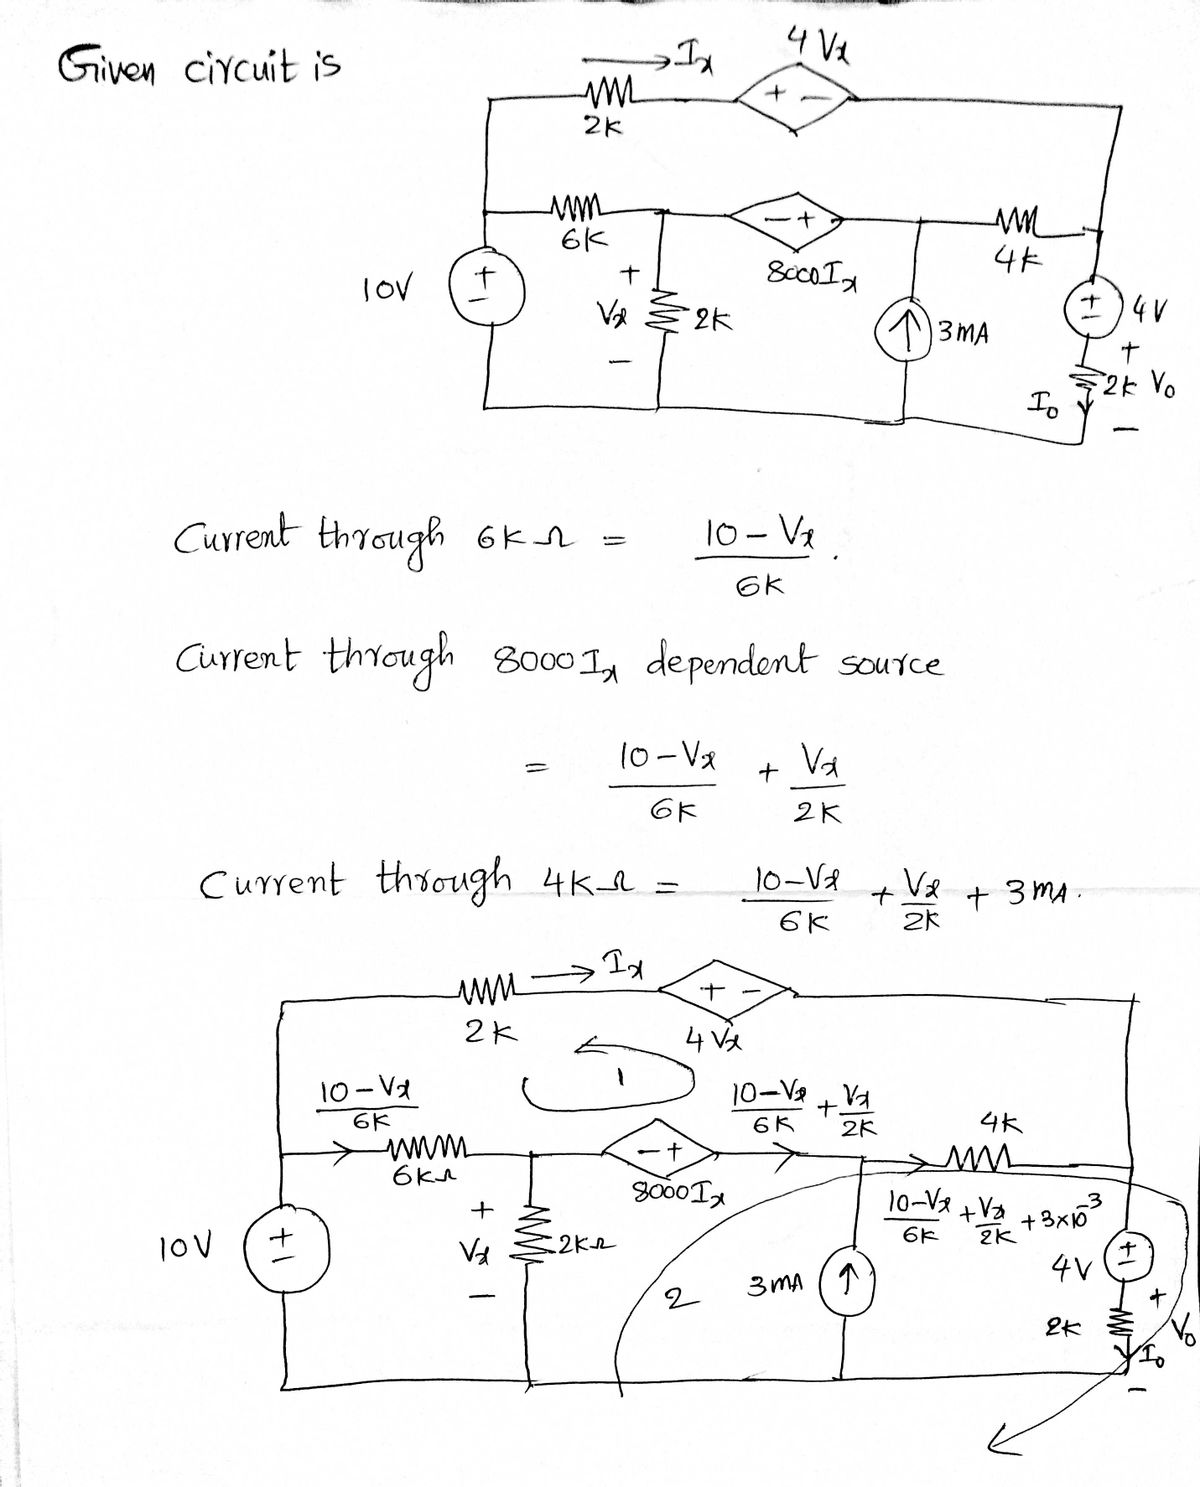 Given circuit is
→ Ix
4 Vx
+ -
2K
6K
- +
8000Ix
4K
10V
+
-
+
Vx
-
2K
↑ 3mA
+
-
4V
+
2K Vo
Io
-
Current through 6KΩ = (10 - Vx)/6K .
Current through 8000 Ix dependent source
= (10 - Vx)/6K + Vx/2K
Current through 4KΩ = (10-Vx)/6K + Vx/2K + 3mA.
→ Ix
+ -
2K
4 Vx
1
(10-Vx)/6K
(10-Vx)/6K + Vx/2K
4K
6KΩ
- +
8000Ix
(10-Vx)/6K + Vx/2K + 3×10⁻³
10V
+
-
+
Vx
-
2KΩ
2
3mA ↑
4V
+
-
2K
+
Vo
Io
-